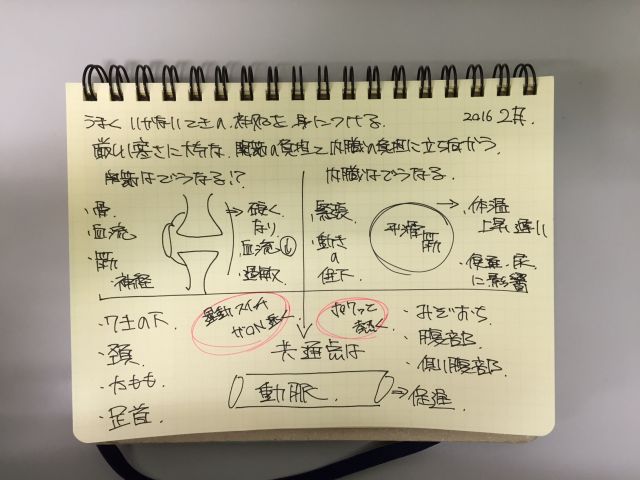 うまくいかないときの対処を身につける。 2016 2月.
厳しい寒さに大切な、関節の負担と内臓の負担に立ち向かう。
関節はどうなる!?
内臓はどうなる。
・骨.
・血流
・筋
・神経
→ 硬く
なり
血流↓
過敏
・緊張
・動き
の
低下
平滑筋
→ ・体温
上昇 遅い
・保温・尿
に影響
・ワキの下.
・頚
・太もも
・足首.
運動スイッチ
がON悪く
共通点は
動脈
⇒ 促進
・みぞおち
・腹部
・側腹部